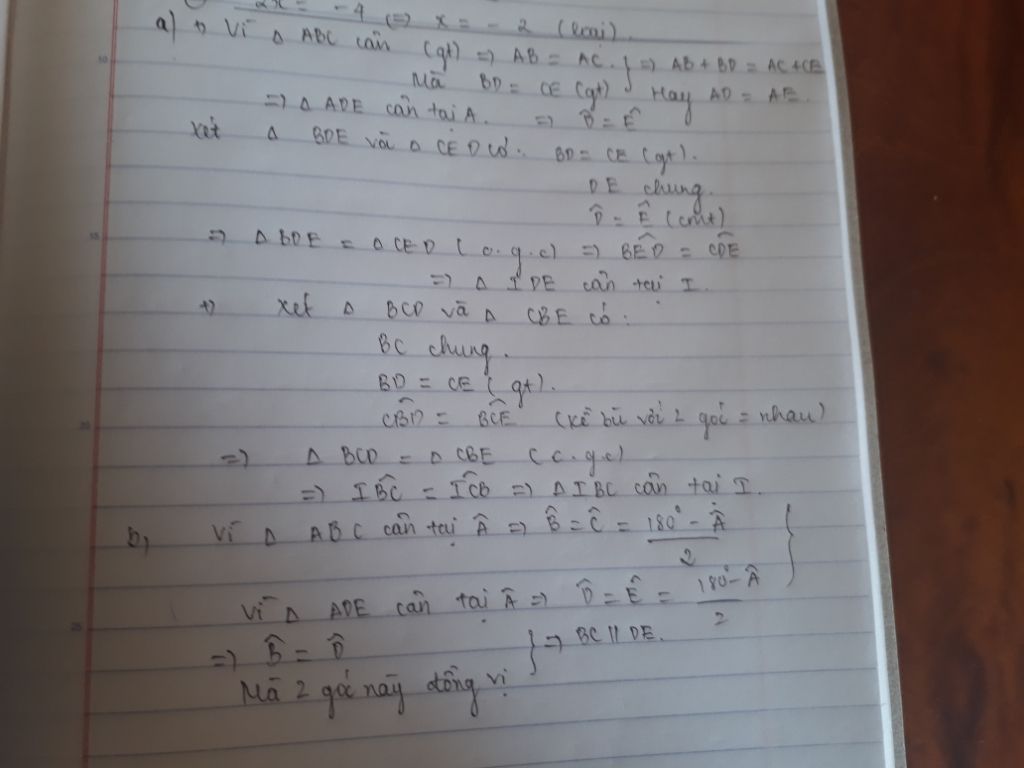 2x = -4 (=) x = -2 (loại).
a) +) Vì Δ ABC cân (gt) => AB = AC. } => AB + BD = AC + CE
Mà BD = CE (gt) Hay AD = AE.
=> Δ ADE cân tại A. => D̂ = Ê
Xét Δ BDE và Δ CED có: BD = CE (gt).
DE chung.
D̂ = Ê (cmt)
=> Δ BDE = Δ CED (c.g.c) => BÊD = CD̂E
=> Δ IDE cân tại I.
+) Xét Δ BCD và Δ CBE có:
BC chung.
BD = CE (gt).
CB̂D = BĈE (kề bù với 2 góc = nhau)
=> Δ BCD = Δ CBE (c.g.c)
=> IB̂C = IĈB => Δ IBC cân tại I.
b, Vì Δ ABC cân tại Â => B̂ = Ĉ = (180° - Â)/2 }
Vì Δ ADE cân tại Â => D̂ = Ê = (180° - Â)/2
=> B̂ = D̂ } => BC // DE.
Mà 2 góc này đồng vị